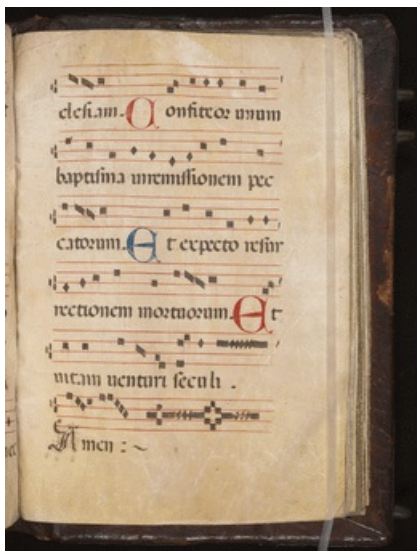 clesiam. Confiteor unum
baptisma inremissionem pec
catorum. Et expecto resur
rectionem mortuorum. Et
uitam uenturi seculi .
Amen : ~